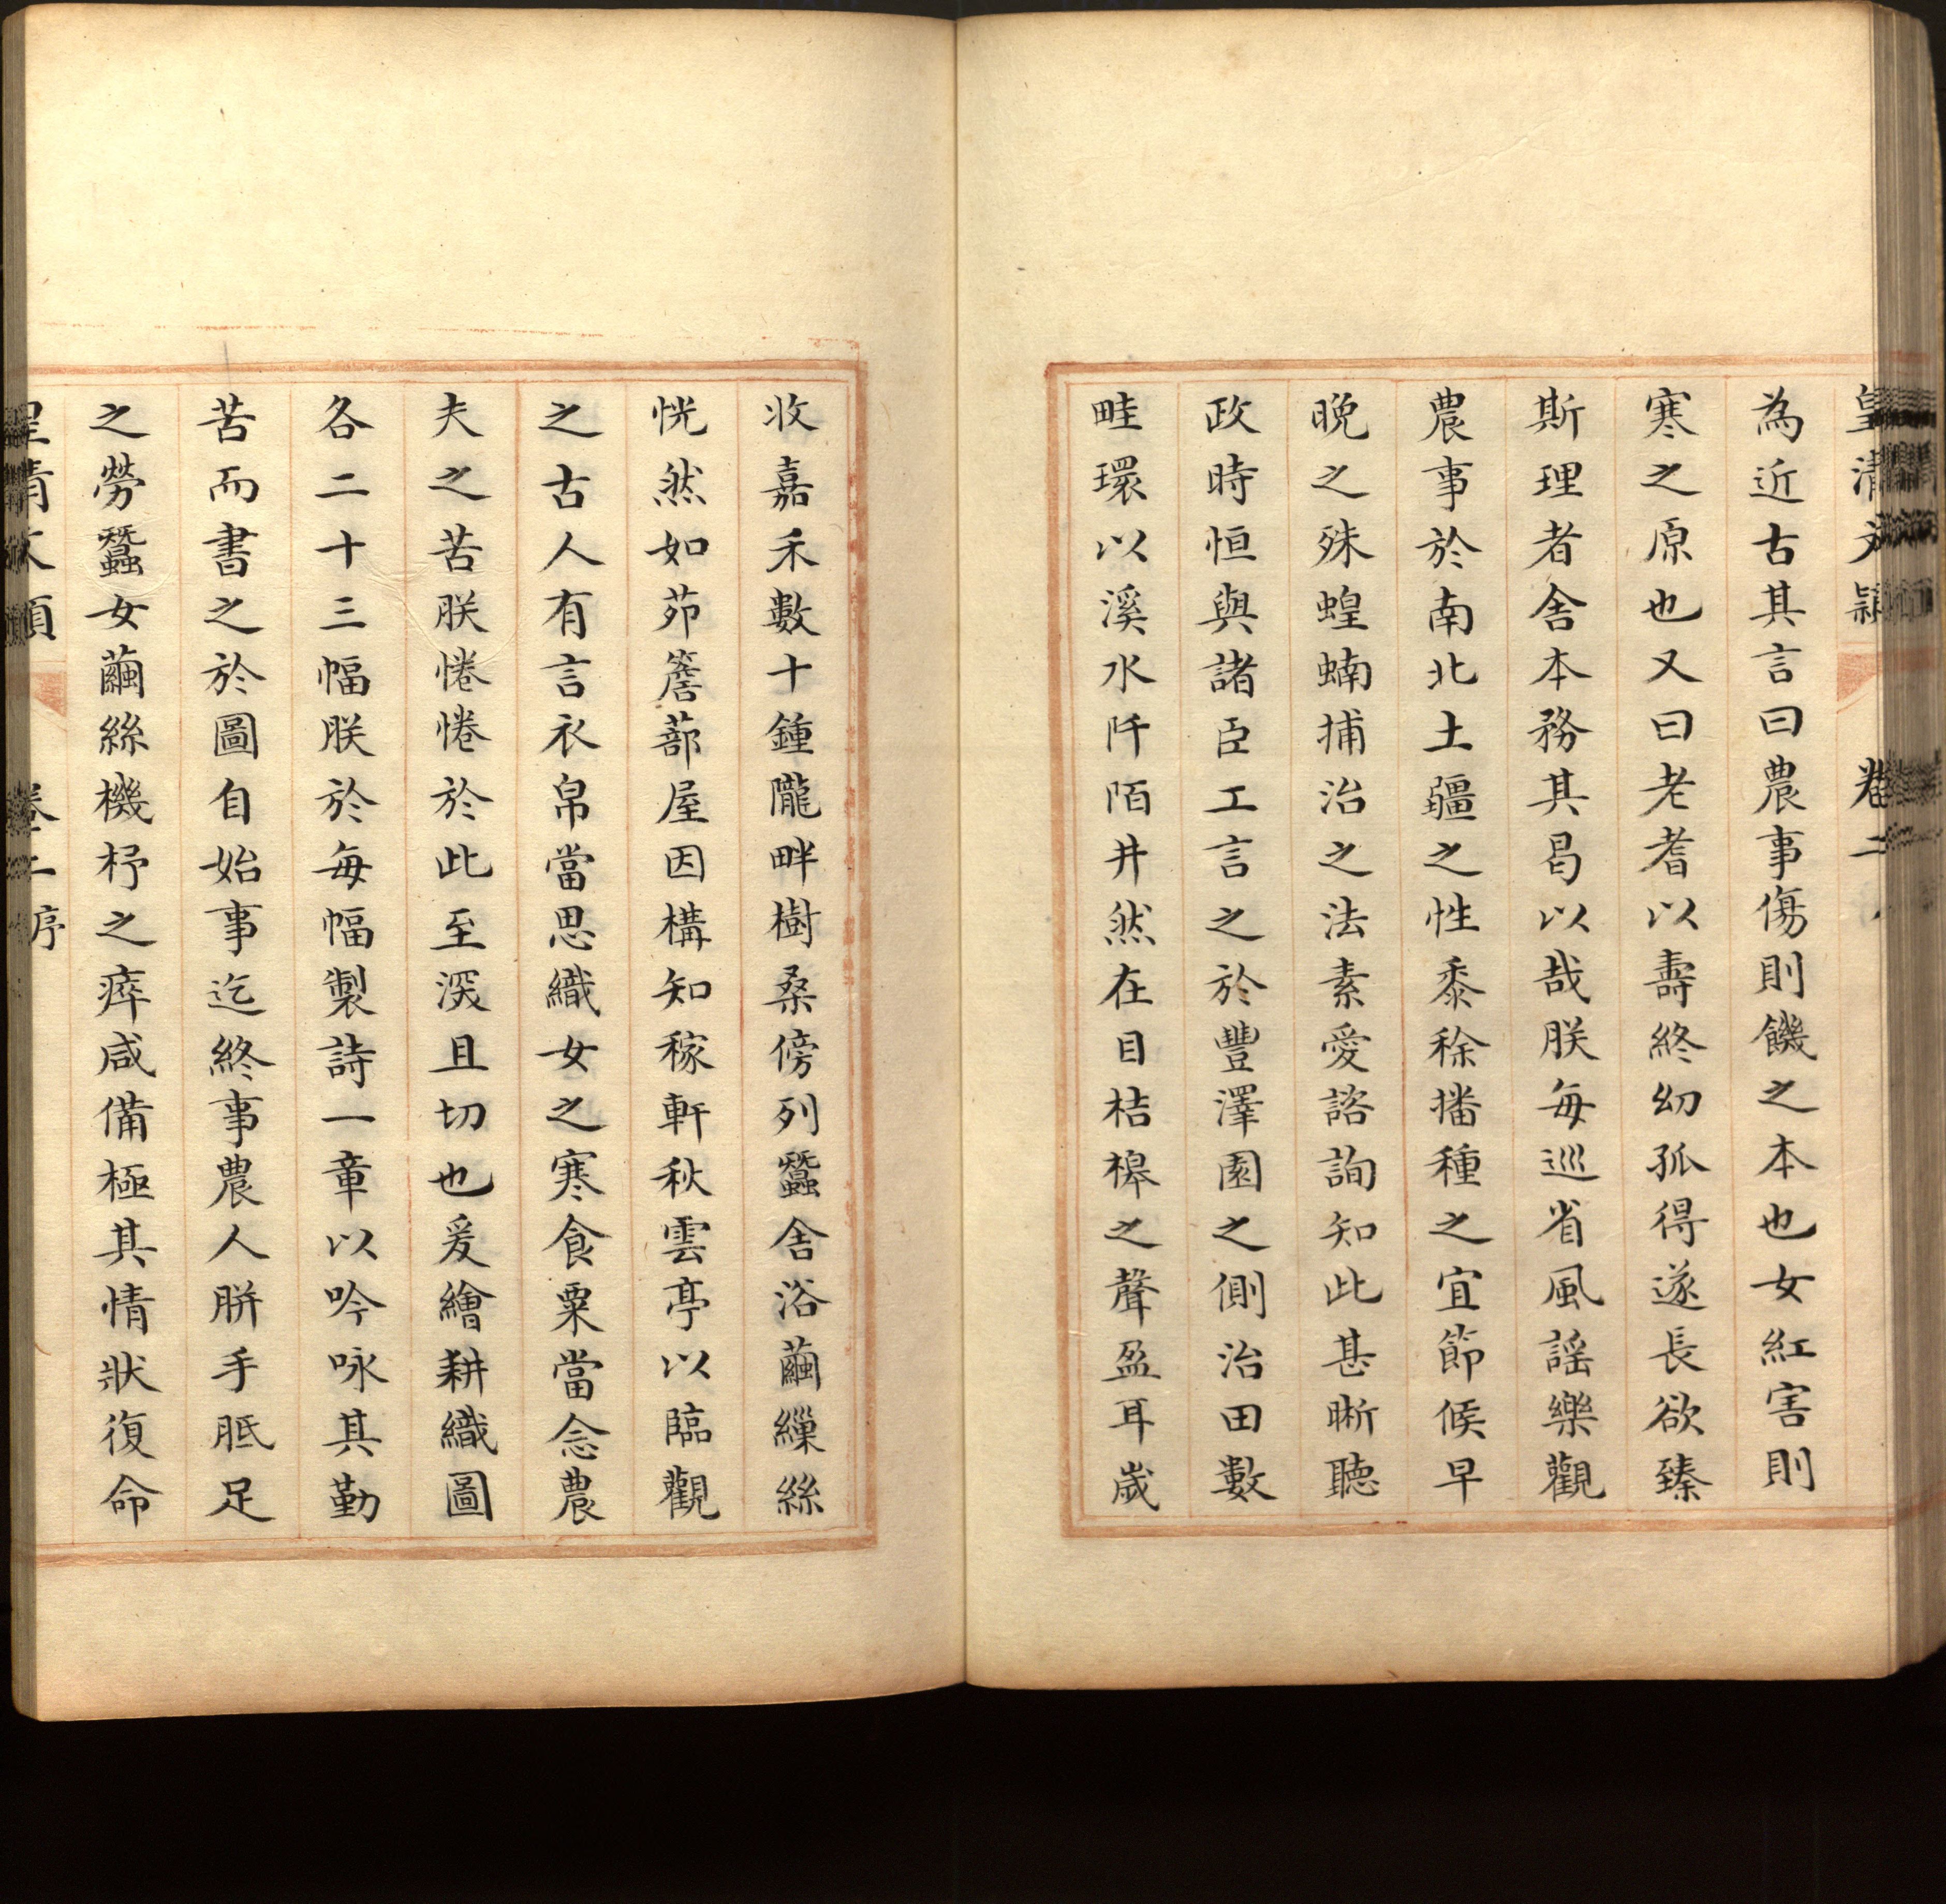 皇清文穎 卷二
為近古其言曰農事傷則饑之本也女紅害則
寒之原也又曰老耆以壽終幼孤得遂長欲臻
斯理者舍本務其曷以哉朕每巡省風謡樂觀
農事於南北土疆之性黍稌播種之宜節候早
晚之殊蝗蝻捕治之法素愛諮詢知此甚晰聽
政時恒與諸臣工言之於豐澤園之側治田數
畦環以溪水阡陌井然在目桔槔之聲盈耳歲
收嘉禾數十鍾隴畔樹桑傍列蠶舍浴繭繅絲
恍然如茆簷蔀屋因構知稼軒秋雲亭以臨觀
之古人有言衣帛當思織女之寒食粟當念農
夫之苦朕惓惓於此至深且切也爰繪耕織圖
各二十三幅朕於每幅製詩一章以吟咏其勤
苦而書之於圖自始事迄終事農人胼手胝足
之勞蠶女繭絲機杼之瘁咸備極其情狀復命
皇清文穎 卷二序